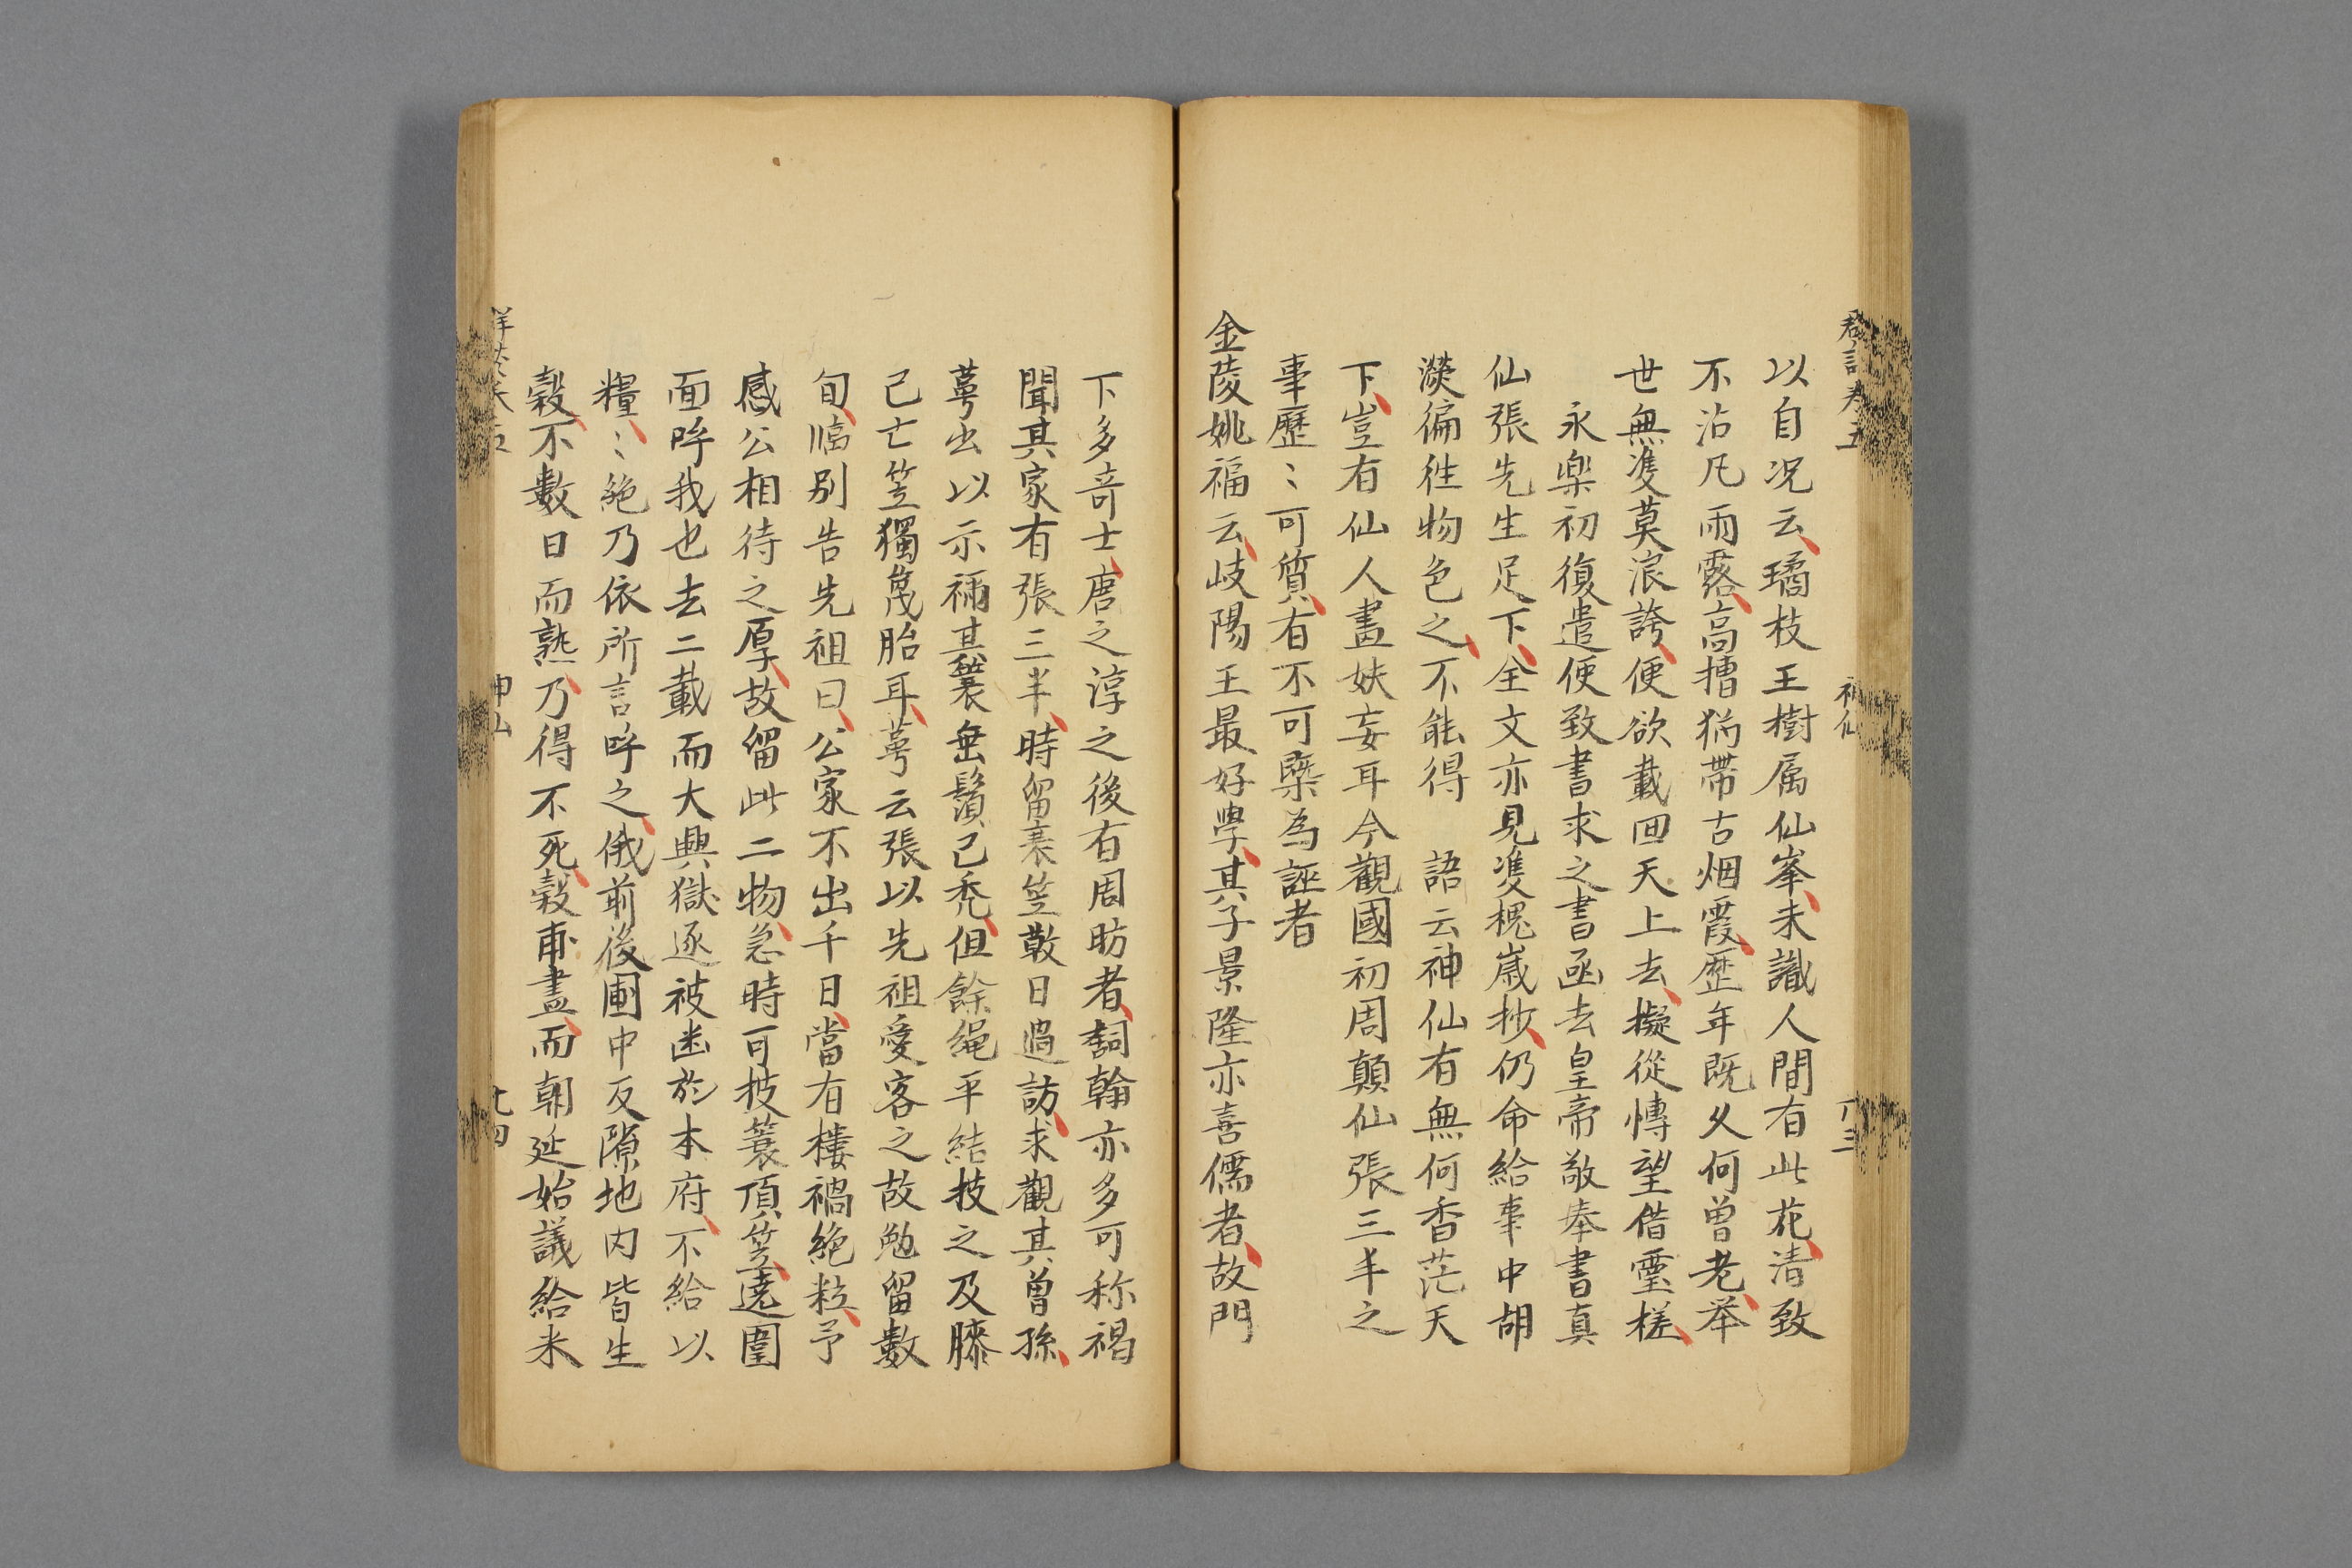 以自况云璚枝王樹属仙峯未識人間有此花清致
不沾凡雨露高摽猶帶古烟霞歷年既久何曾老举
世無𨾏莫浪誇便欲載回天上去擬從博望借靈槎
永樂初復遣使致書求之書函去皇帝敬奉書真
仙張先生足下全文亦見𨾏槐歲抄仍命給事中胡
濙徧徃物色之不能得 語云神仙有無何杳茫天
下豈有仙人盡妖妄耳今觀國初周顛仙張三丰之
事歷〻可質有不可槩為誣者
金陵姚福云岐陽王最好學其子景隆亦喜儒者故門
下多竒士唐之淳之後有周昉者詞翰亦多可称禍
聞其家有張三丰時留蓑笠敢日過訪求觀其曽孫
萼出以示禰其蓑垂鬚已秃但餘繩平結技之及膝
己亡笠獨篾胎耳萼云張以先祖愛客之故勉留數
旬臨别告先祖曰公家不出千日當有橫禍絶粒予
感公相待之厚故留此二物急時可披蓑頂笠遶圍
面呼我也去二載而大興獄逐被幽於本府不給以
糧〻絶乃依所言呼之俄前後圃中反隙地内皆生
穀不數日而熟乃得不死穀甫盡而朝廷始議給米
君記卷五
神仙